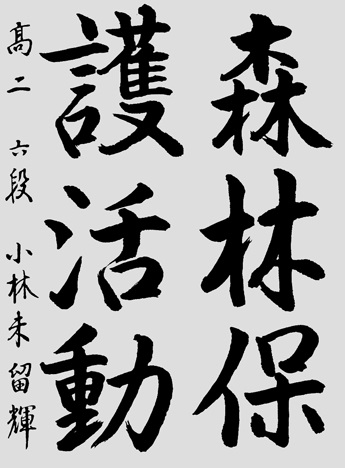 森林保
護活動
髙二 六段 小林未留輝